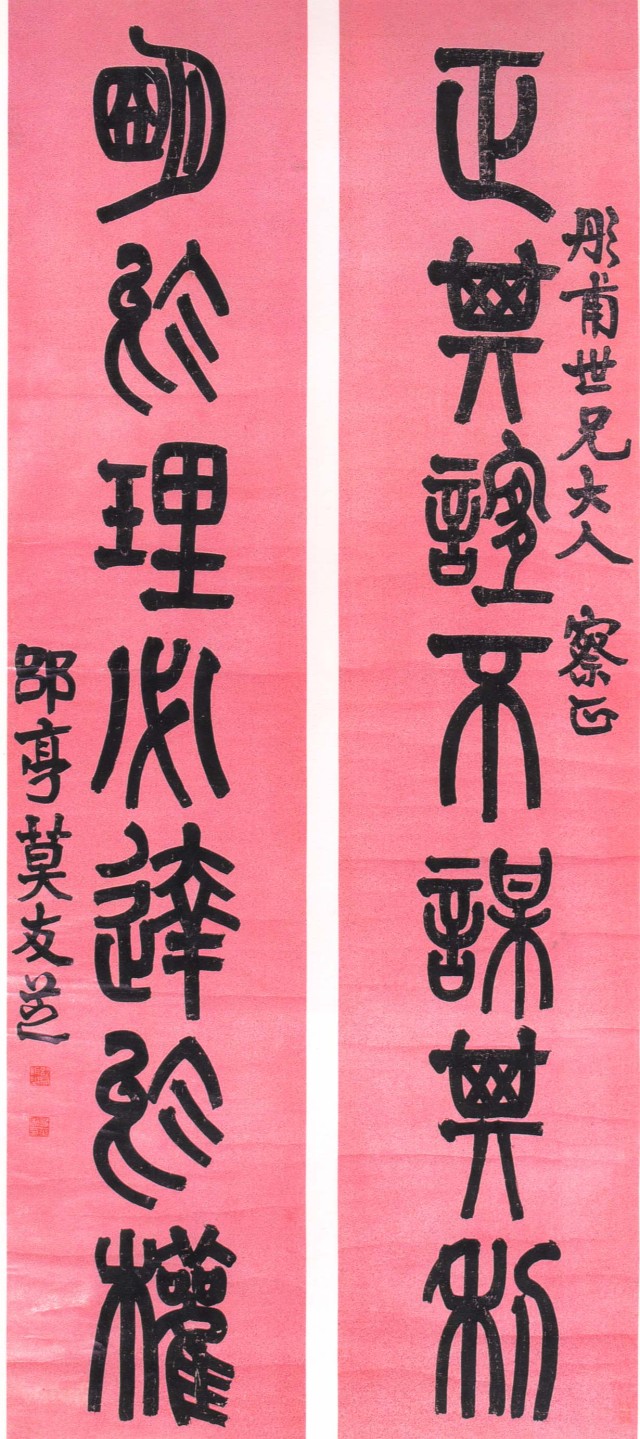 彤甫世兄大人 察正
正其誼不謀其利
明於理必達於權
郘亭莫友芝